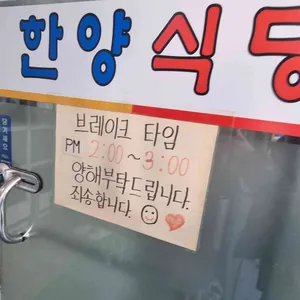 한양식당
브레이크 타임
PM 2:00 ~ 3:00
양해부탁드립니다.
죄송합니다.